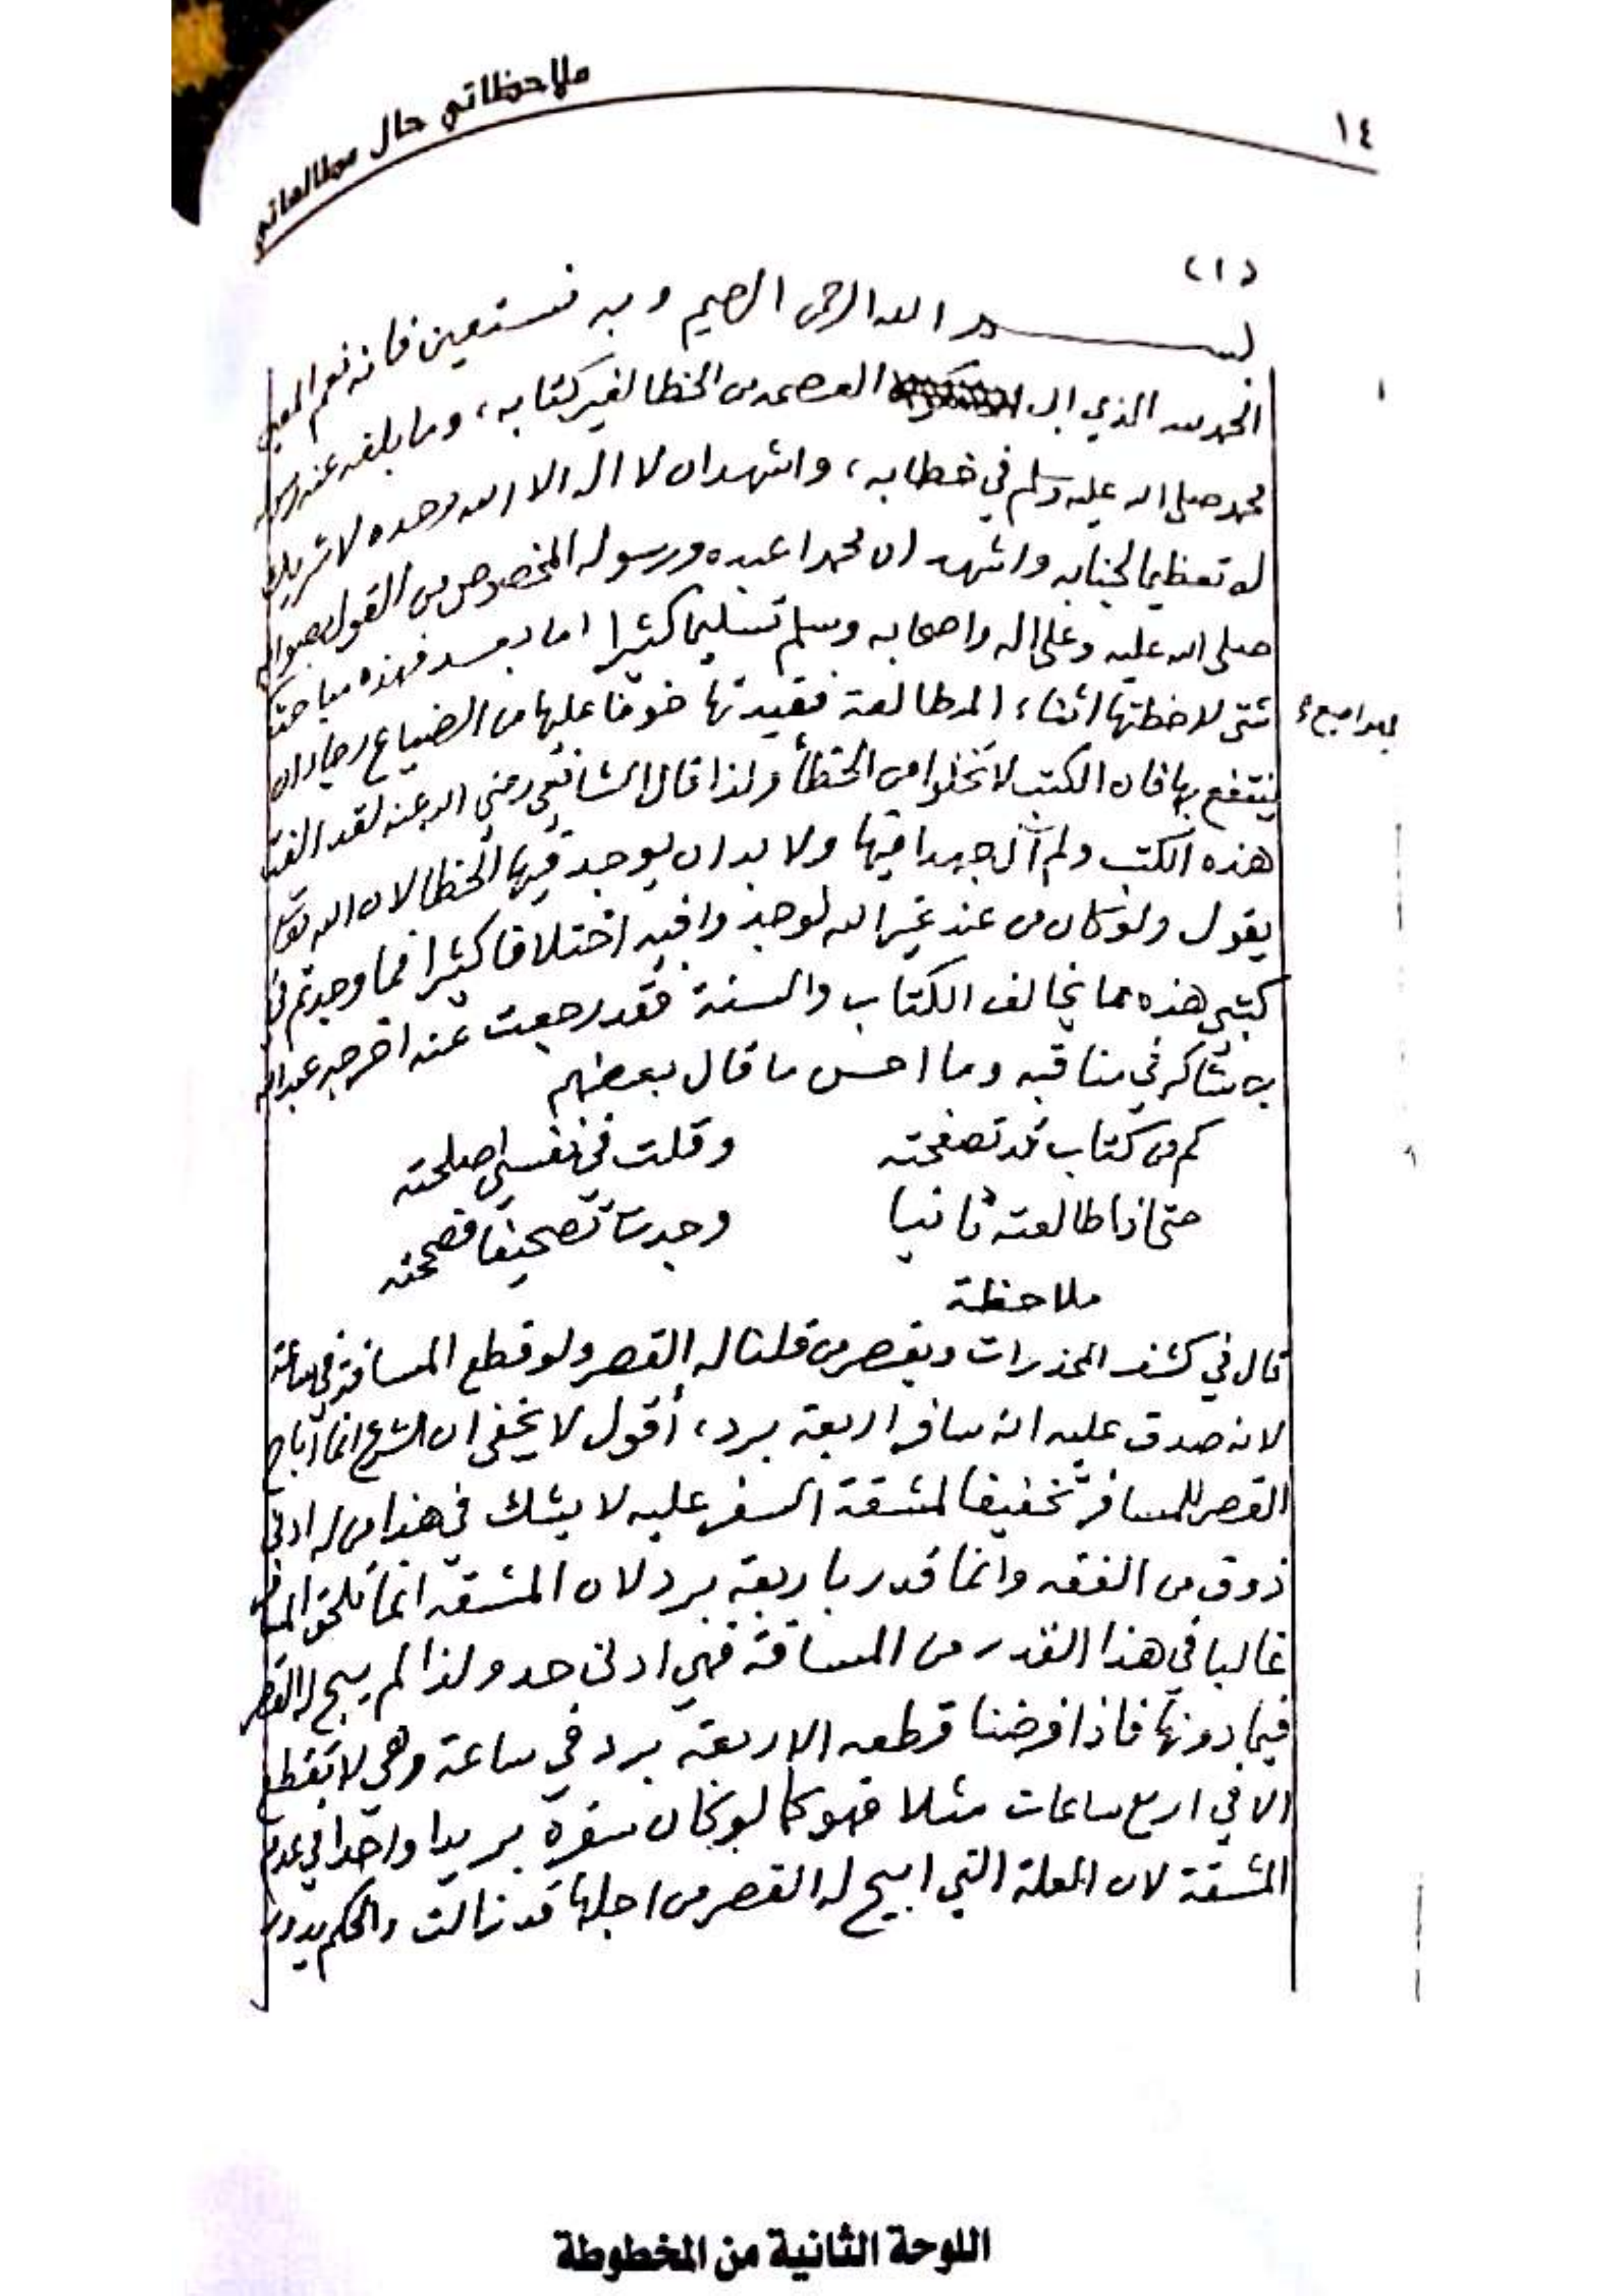 ١٤
ملاحظاتي حال مطالعاتي
(١)
بسم الله الرحمن الرحيم وبه نستعين فانه نعم المعين
الحمد لله الذي ابى العصمه من الخطا لغير كتابه، وما بلغه عنه رسوله
محمد صلى الله عليه وسلم في خطابه، واشهد ان لا اله الا الله وحده لا شريك
له تعظيما لجنابه واشهد ان محمدا عبده ورسوله المخصوص من القول بصوابه
صلى الله عليه وعلى اله واصحابه وسلم تسليما كثيرا اما بعد فهذه مباحث
شتى لاحظتها اثناء المطالعة فقيدتها خوفا عليها من الضياع رجاء ان
ينتفع بها فان الكتب لا تخلوا من الخطأ ولذا قال الشافعي رضي الله عنه لقد الفت
هذه الكتب ولم آل جهدا فيها ولا بد ان يوجد فيها الخطا لان الله تعالى
يقول ولو كان من عند غير الله لوجدوا فيه اختلافا كثيرا فما وجدتم في
كتبي هذه مما يخالف الكتاب والسنة فقد رجعت عنه اخرجه عبد الله
بن شاكر في مناقبه وما احسن ما قال بعضهم
كم من كتاب قد تصفحته وقلت في نفسي اصلحته
حتى اذا طالعته ثانيا وجدت تصحيفا فصححته
ملاحظة
قال في كشف المخدرات ويقصر من قلنا له القصر ولو قطع المسافة في ساعة
لانه صدق عليه انه سافر اربعة برد، أقول لا يخفى ان الشرع انما أباح
القصر للمسافر تخفيفا لمشقة السفر عليه لا يشك في هذا من له ادنى
ذوق من الفقه وانما قدر باربعة برد لان المشقه انما تلحق المسافر
غالبا في هذا القدر من المسافة فهي ادنى حد ولذا لم يبح له القصر
فيما دونها فاذا فرضنا قطعه الاربعة برد في ساعة وهي لا تقطع
الا في اربع ساعات مثلا فهو كما لو كان سفره بريدا واحدا في عدم
المشقة لان العلة التي ابيح له القصر من اجلها قد زالت والحكم يدور
اللوحة الثانية من المخطوطة